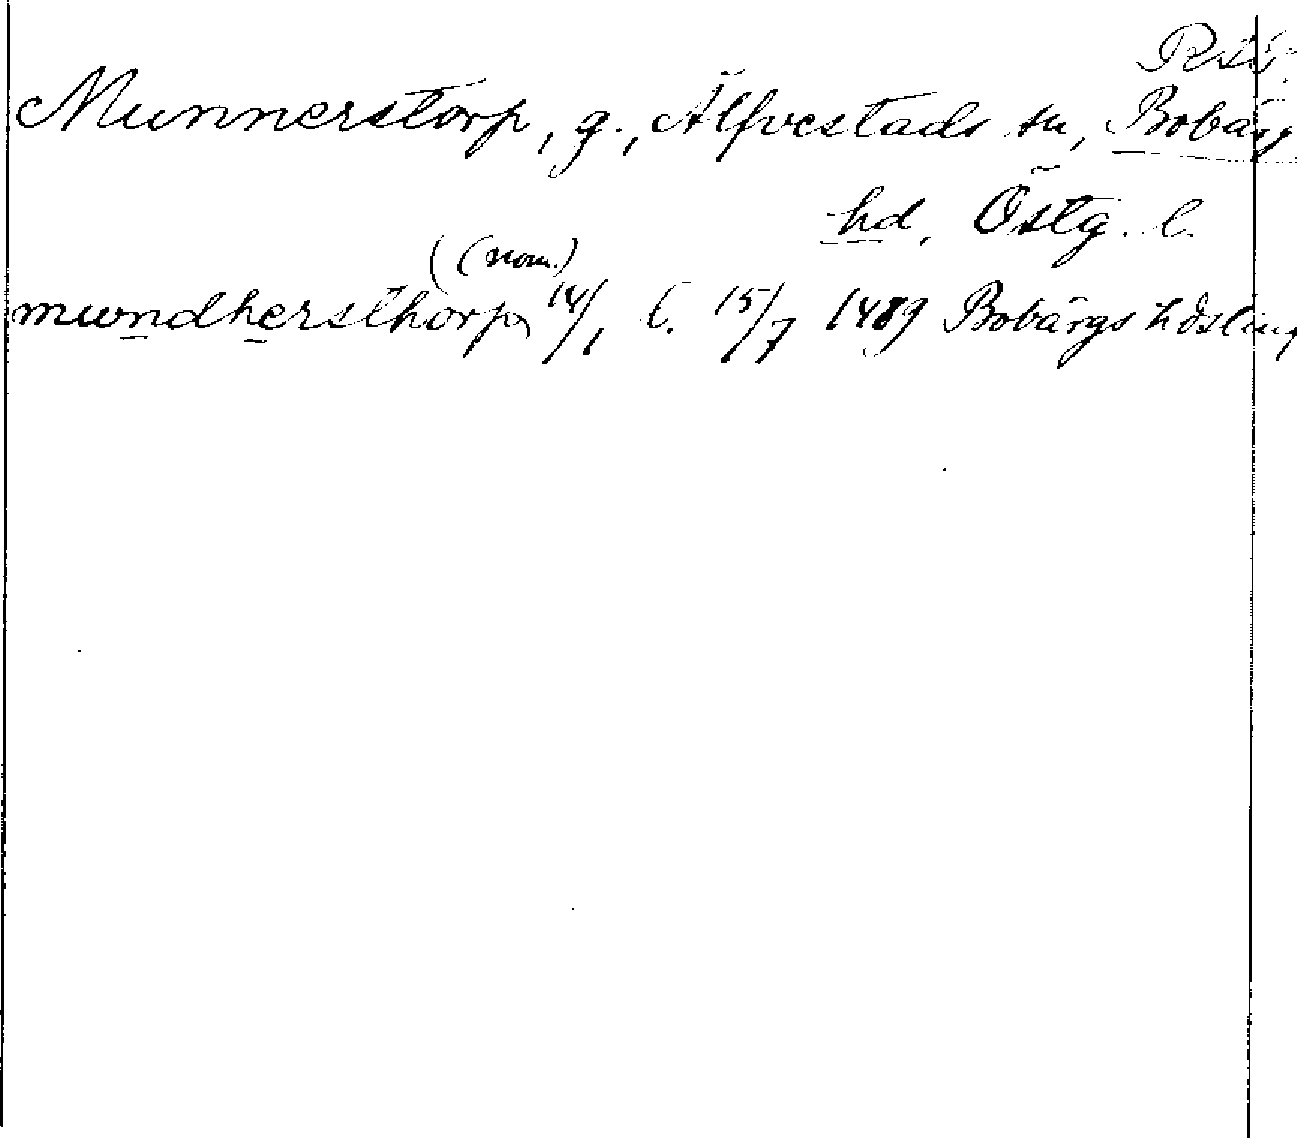 Munnerstorp, g., Älfvestads sn, Bobärg
hd, Östg. l.
(nom.)
mundhersthorp 14/1 C. 15/7 1489 Bobärgs hdsting